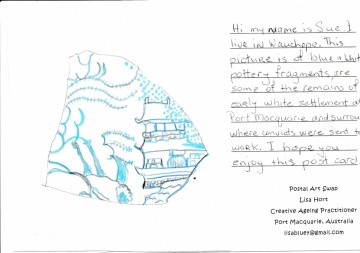 Hi my name is Sue I
live in Wauchope. This
picture is of blue & white
pottery fragments, are
some of the remains of
early white settlement at
Port Macquarie and surrou
where convicts were sent to
work. I hope you
enjoy this post card
Postal Art Swap
Lisa Hort
Creative Ageing Practitioner
Port Macquarie, Australia
lisabluey@gmail.com